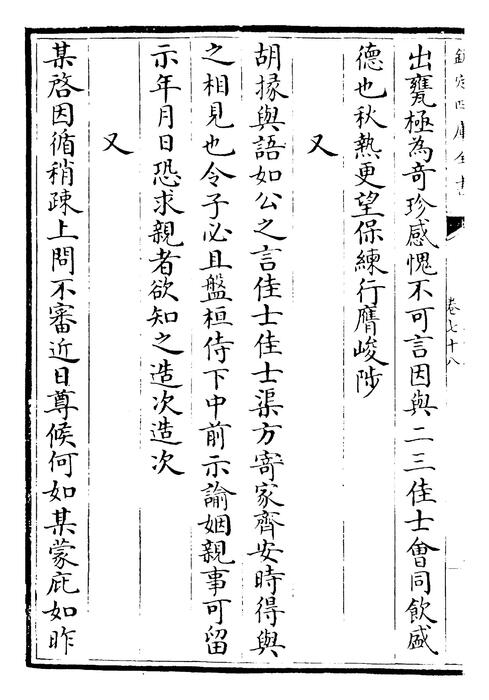 欽定四庫全書
卷七十八
出甕極為奇珍感愧不可言因與二三佳士會同飲盛
德也秋熱更望保練行膺峻陟
又
胡掾與語如公之言佳士佳士渠方寄家齊安時得與
之相見也令子必且盤桓侍下中前示諭姻親事可留
示年月日恐求親者欲知之造次造次
又
某啓因循稍疎上問不審近日尊候何如某蒙庇如昨